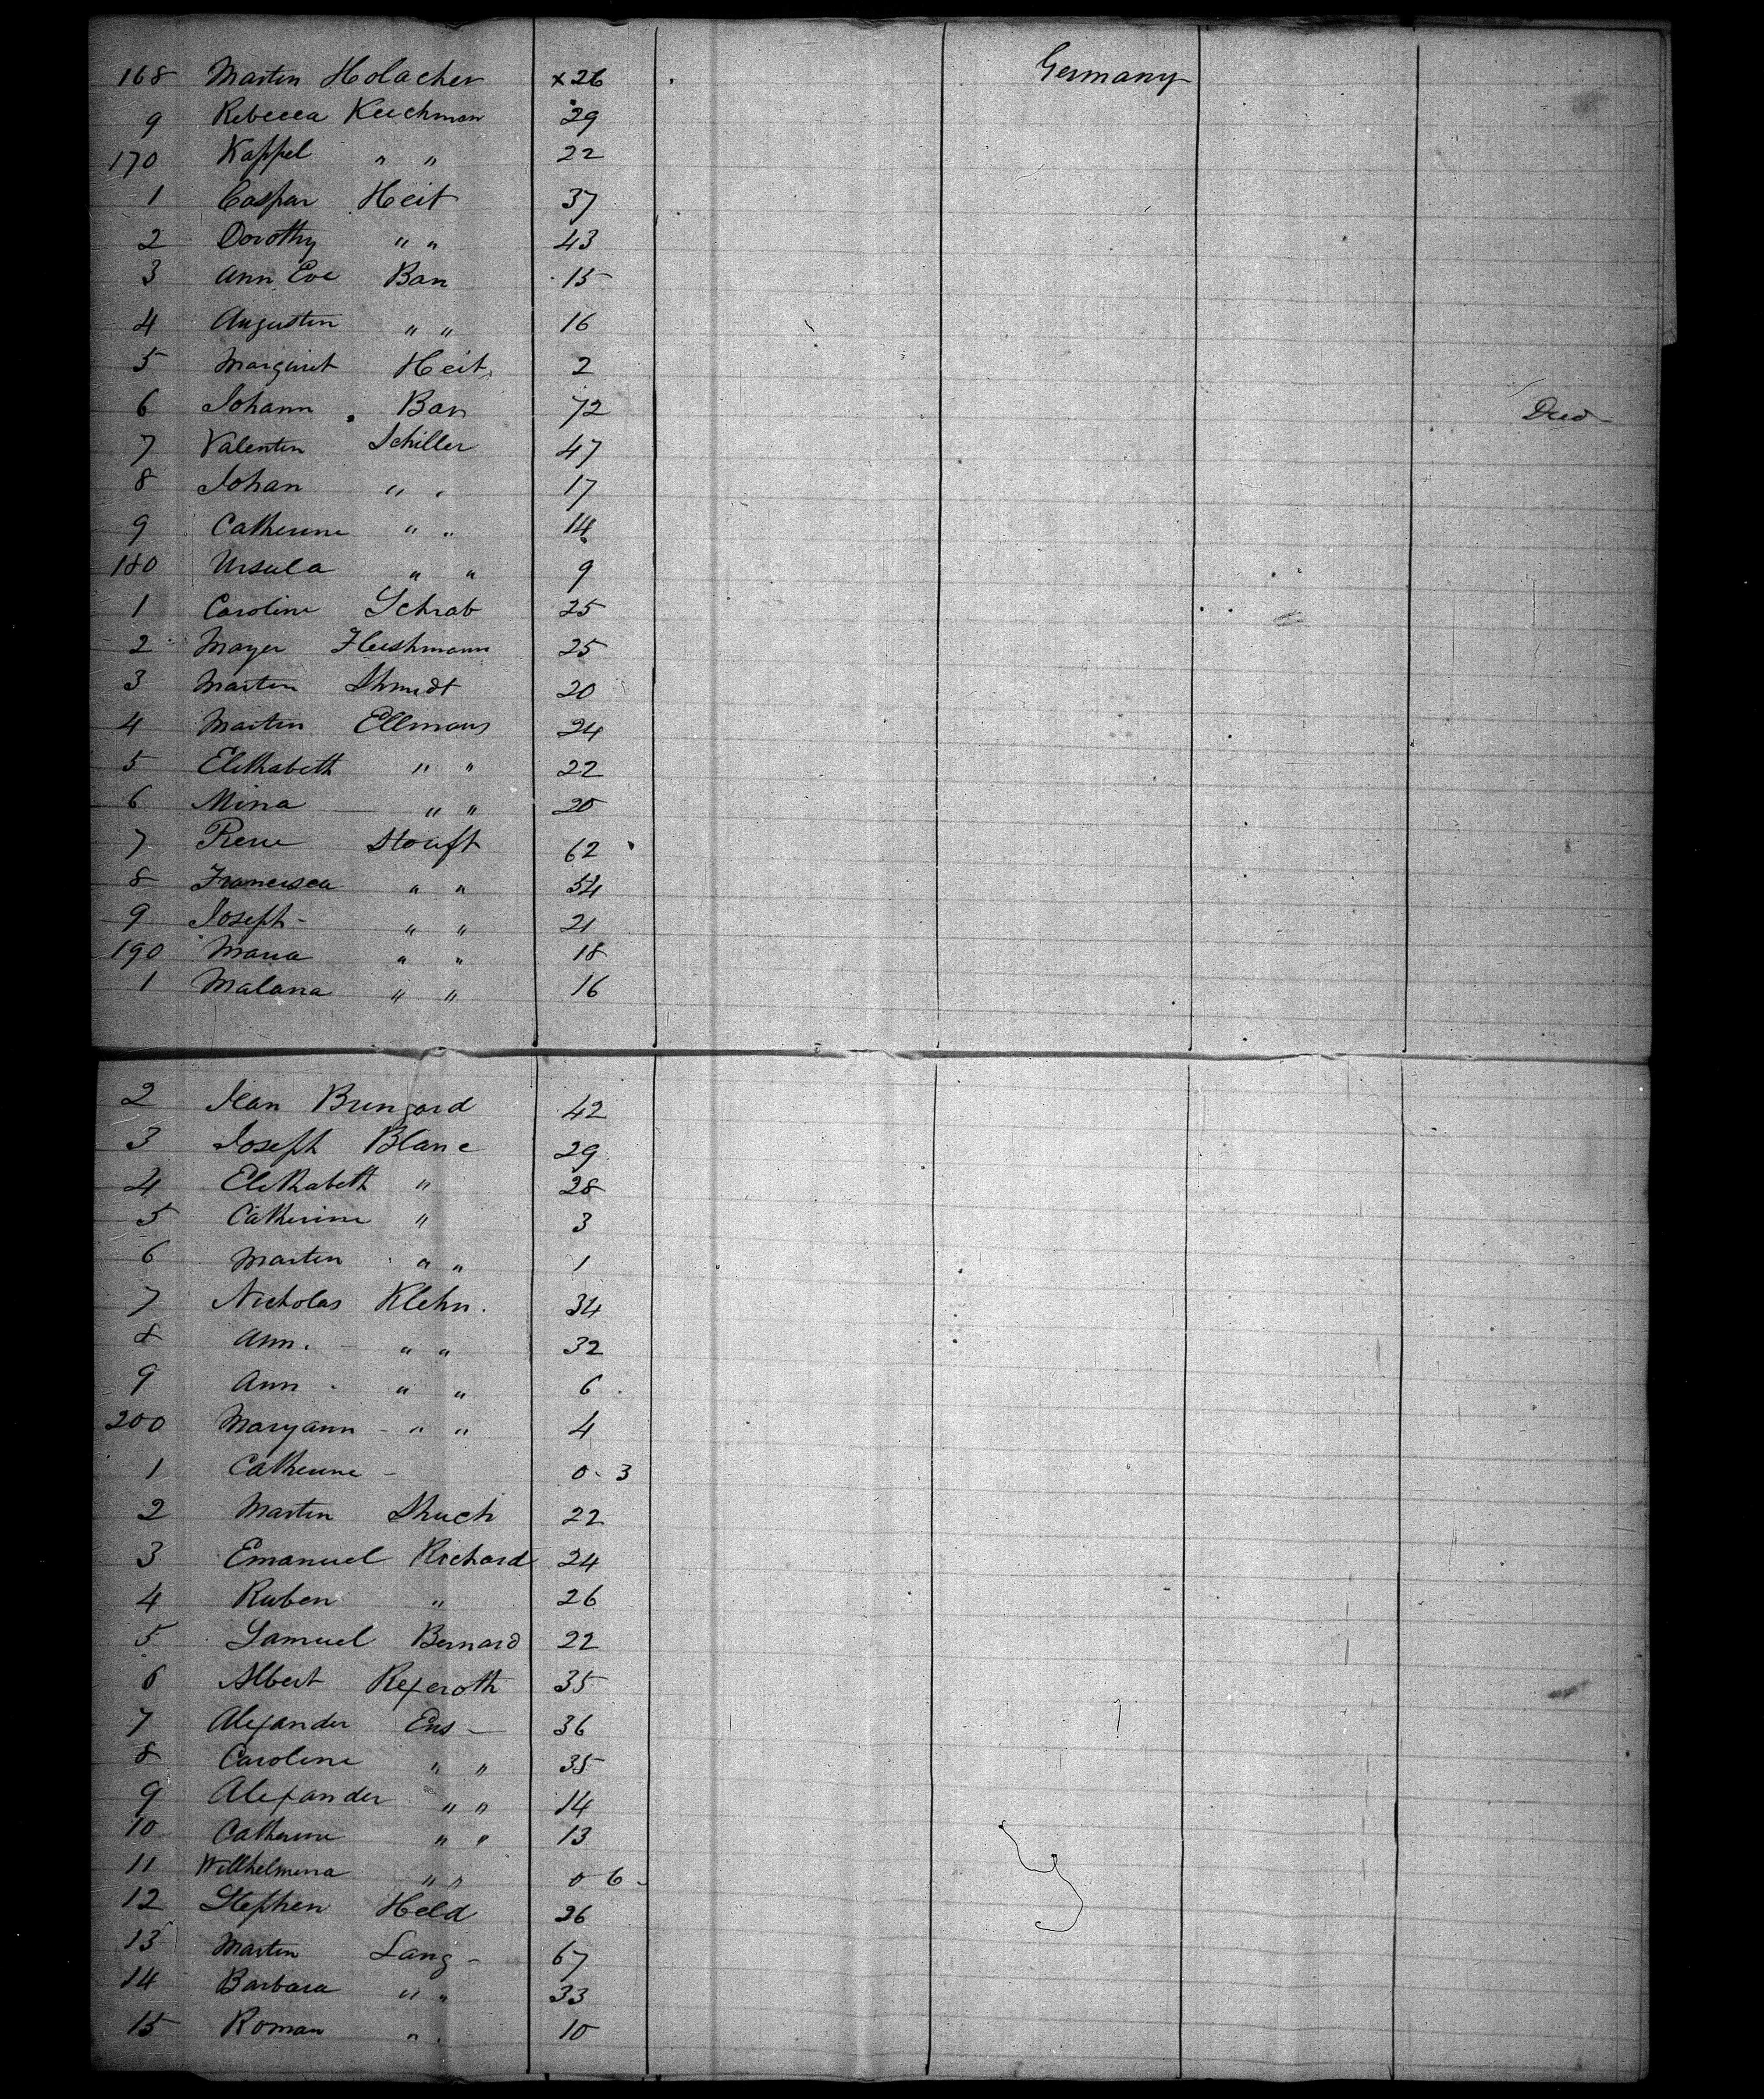 168 Martin Holacher x 26 Germany
9 Rebecca Keechman 29
170 Kappel " " 22
1 Caspar Heit 37
2 Dorothy " " 43
3 Ann Eve Ban 15
4 Augustin " " 16
5 Margaret Heit 2
6 Johann Ban 72 Died
7 Valentin Schiller 47
8 Johan " " 17
9 Catherine " " 14
180 Ursula " " 9
1 Caroline Schrab 25
2 Mayer Fleishmann 25
3 Martin Shmidt 20
4 Martin Ellmans 24
5 Elethabeth " " 22
6 Mina " " 20
7 Rene Stouft 62
8 Francisca " " 54
9 Joseph - " " 21
190 Maria " " 18
1 Malana " " 16
2 Jean Brungard 42
3 Joseph Blanc 29
4 Elethabeth " 28
5 Catherine " 3
6 Martin " " 1
7 Nicholas Klehn. 34
8 Ann. - " " 32
9 Ann - " " 6
200 Maryann - " " 4
1 Catherine - 0-3
2 Martin Shuch 22
3 Emanuel Richard 24
4 Ruben " 26
5 Samuel Bernard 22
6 Albert Rexeroth 35
7 Alexander Ens - 36
8 Caroline " " 35
9 Alexander " " 14
10 Catherine " " 13
11 Willhelmina " " 0 6-
12 Stephen Held 26
13 Martin Lang - 67
14 Barbara " " 33
15 Roman " 10